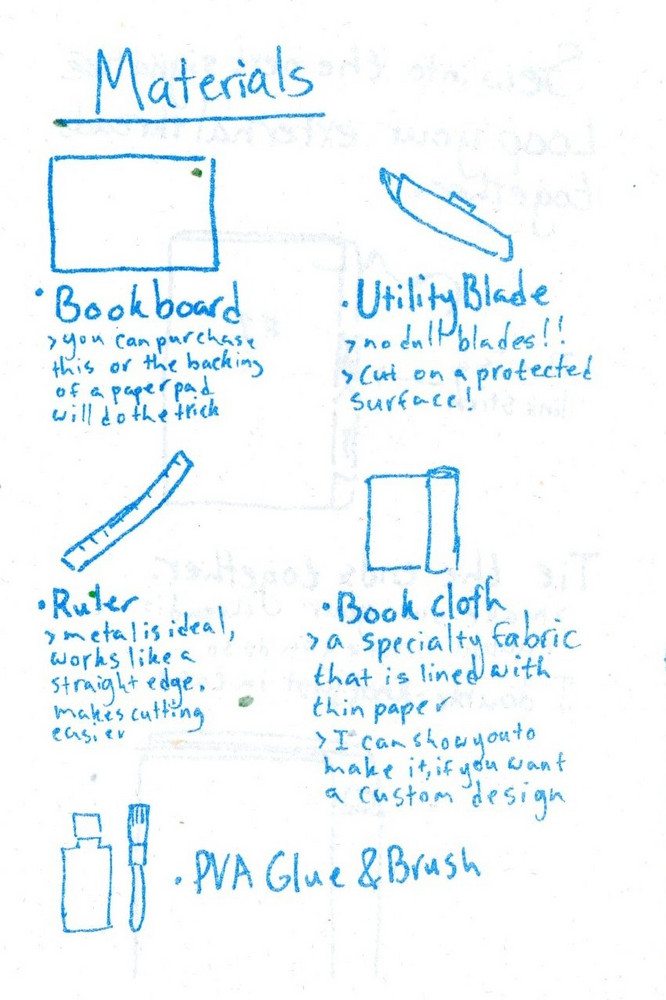 Materials
• Bookboard
> you can purchase
this or the backing
of a paper pad
will do the trick
• Utility Blade
> no dull blades!!
> Cut on a protected
surface!
• Ruler
> metal is ideal,
works like a
straight edge.
makes cutting
easier
• Book cloth
> a specialty fabric
that is lined with
thin paper
> I can show you to
make it, if you want
a custom design
• PVA Glue & Brush